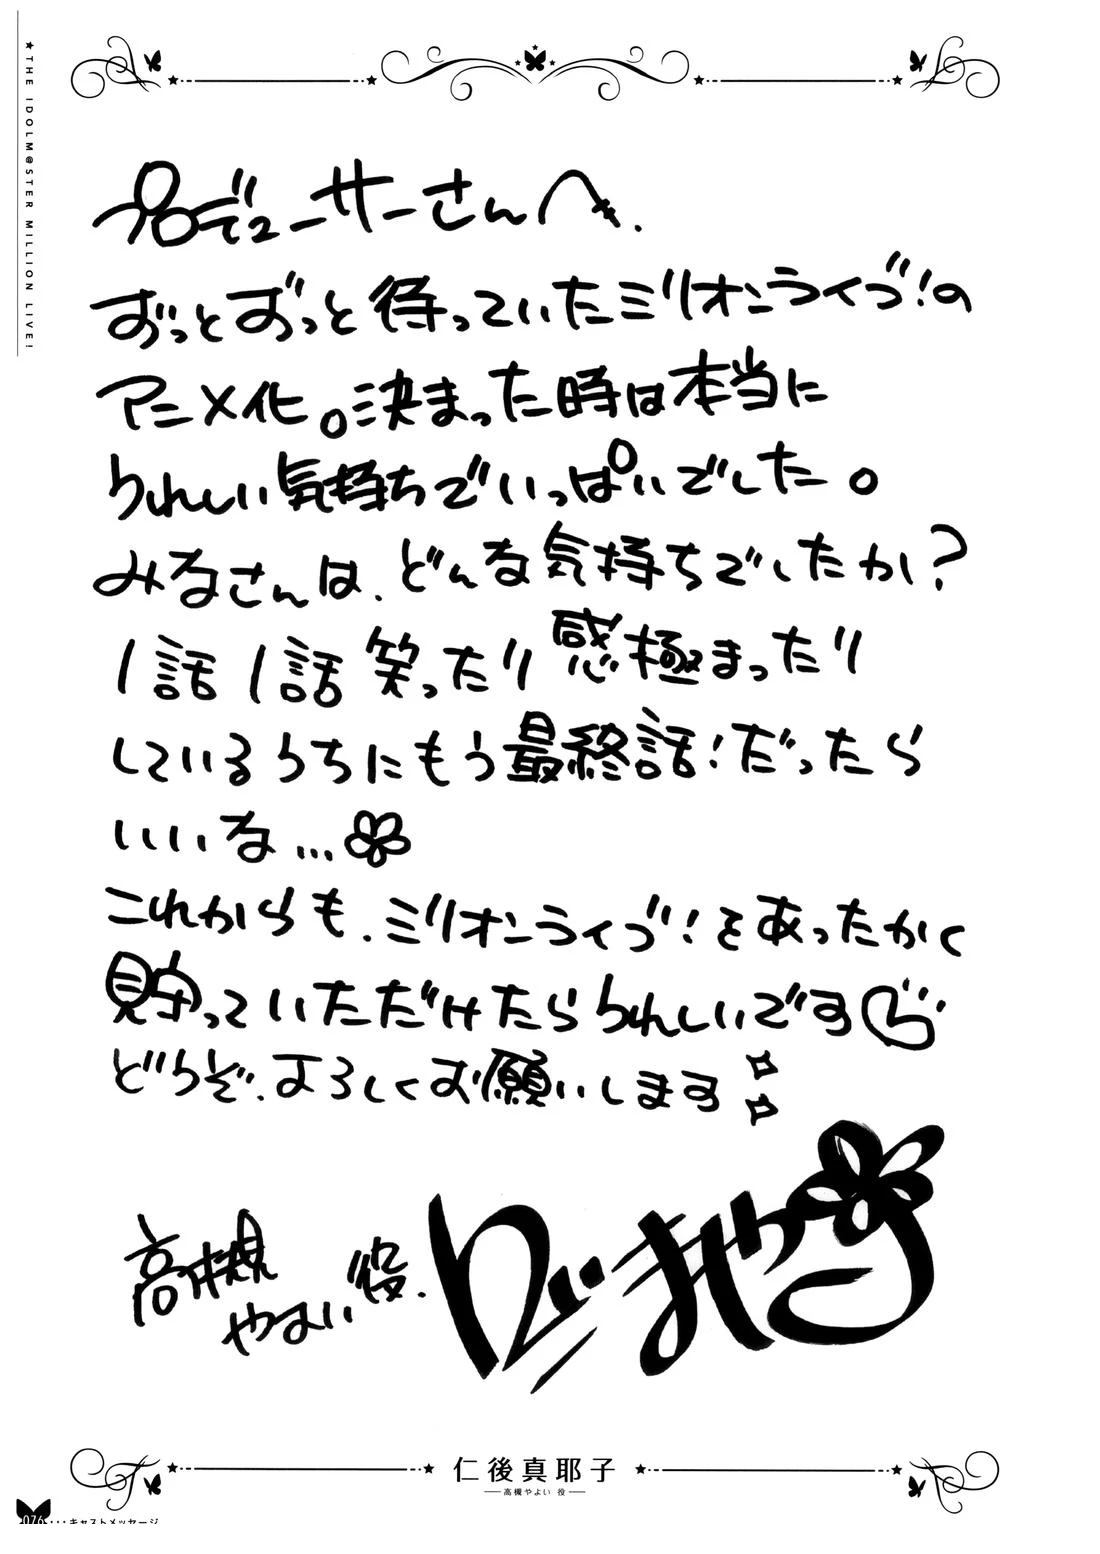 ★THE IDOLM@STER MILLION LIVE!
プロデューサーさんへ.
ずっとずっと待っていたミリオンライブ!の
アニメ化。決まった時は本当に
うれしい気持ちでいっぱいでした。
みなさんは、どんな気持ちでしたか?
1話1話笑ったり感極まったり
しているうちにもう最終話!だったら
いいな...
これからも、ミリオンライブ!をあったかく
見守っていただけたらうれしいです
どうぞ、よろしくお願いします
高槻
やよい役.
仁後真耶子
高槻やよい 役
076・・・キャストメッセージ